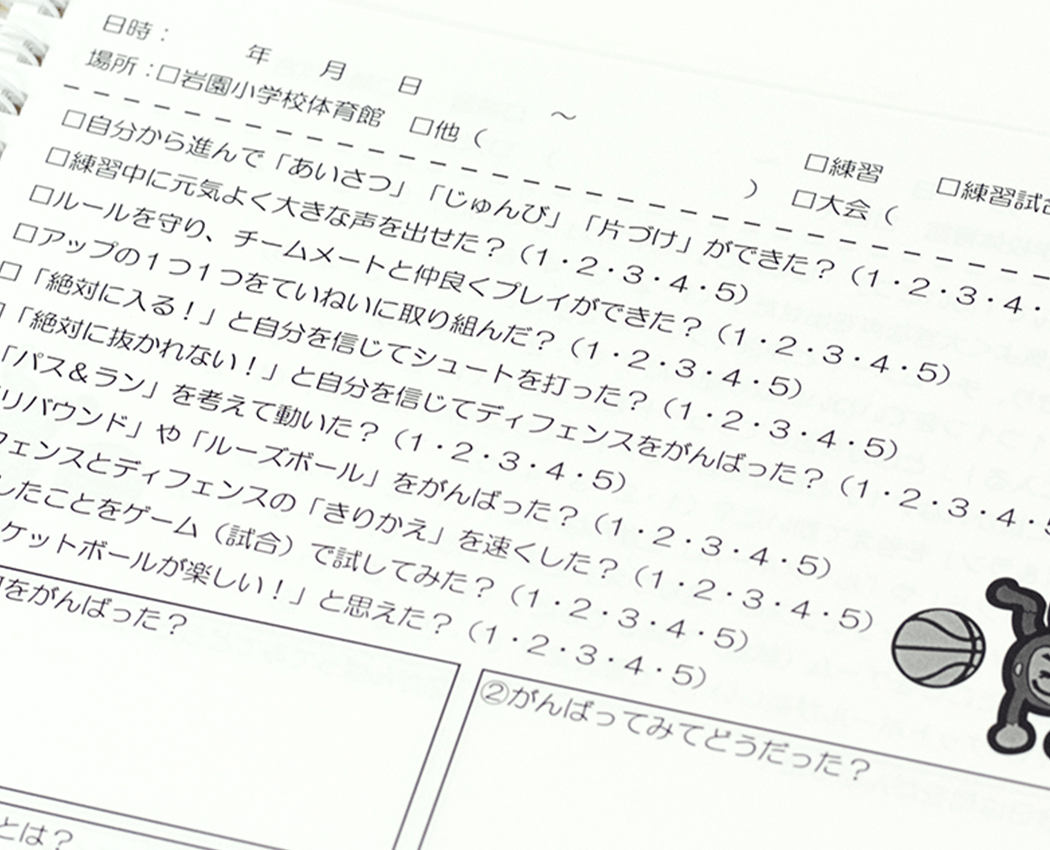 日時： 年 月 日 ～ □練習 □練習試合
場所：□岩園小学校体育館 □他（ ） □大会（
□自分から進んで「あいさつ」「じゅんび」「片づけ」ができた？（1・2・3・4・
□練習中に元気よく大きな声を出せた？（1・2・3・4・5）
□ルールを守り、チームメートと仲良くプレイができた？（1・2・3・4・5）
□アップの１つ１つをていねいに取り組んだ？（1・2・3・4・5）
□「絶対に入る！」と自分を信じてシュートを打った？（1・2・3・4・5）
「絶対に抜かれない！」と自分を信じてディフェンスをがんばった？（1・2・3・4・5
「パス＆ラン」を考えて動いた？（1・2・3・4・5）
リバウンド」や「ルーズボール」をがんばった？（1・2・3・4・5）
フェンスとディフェンスの「きりかえ」を速くした？（1・2・3・4・5）
したことをゲーム（試合）で試してみた？（1・2・3・4・5）
ケットボールが楽しい！」と思えた？（1・2・3・4・5）
をがんばった？
②がんばってみてどうだった？
とは？